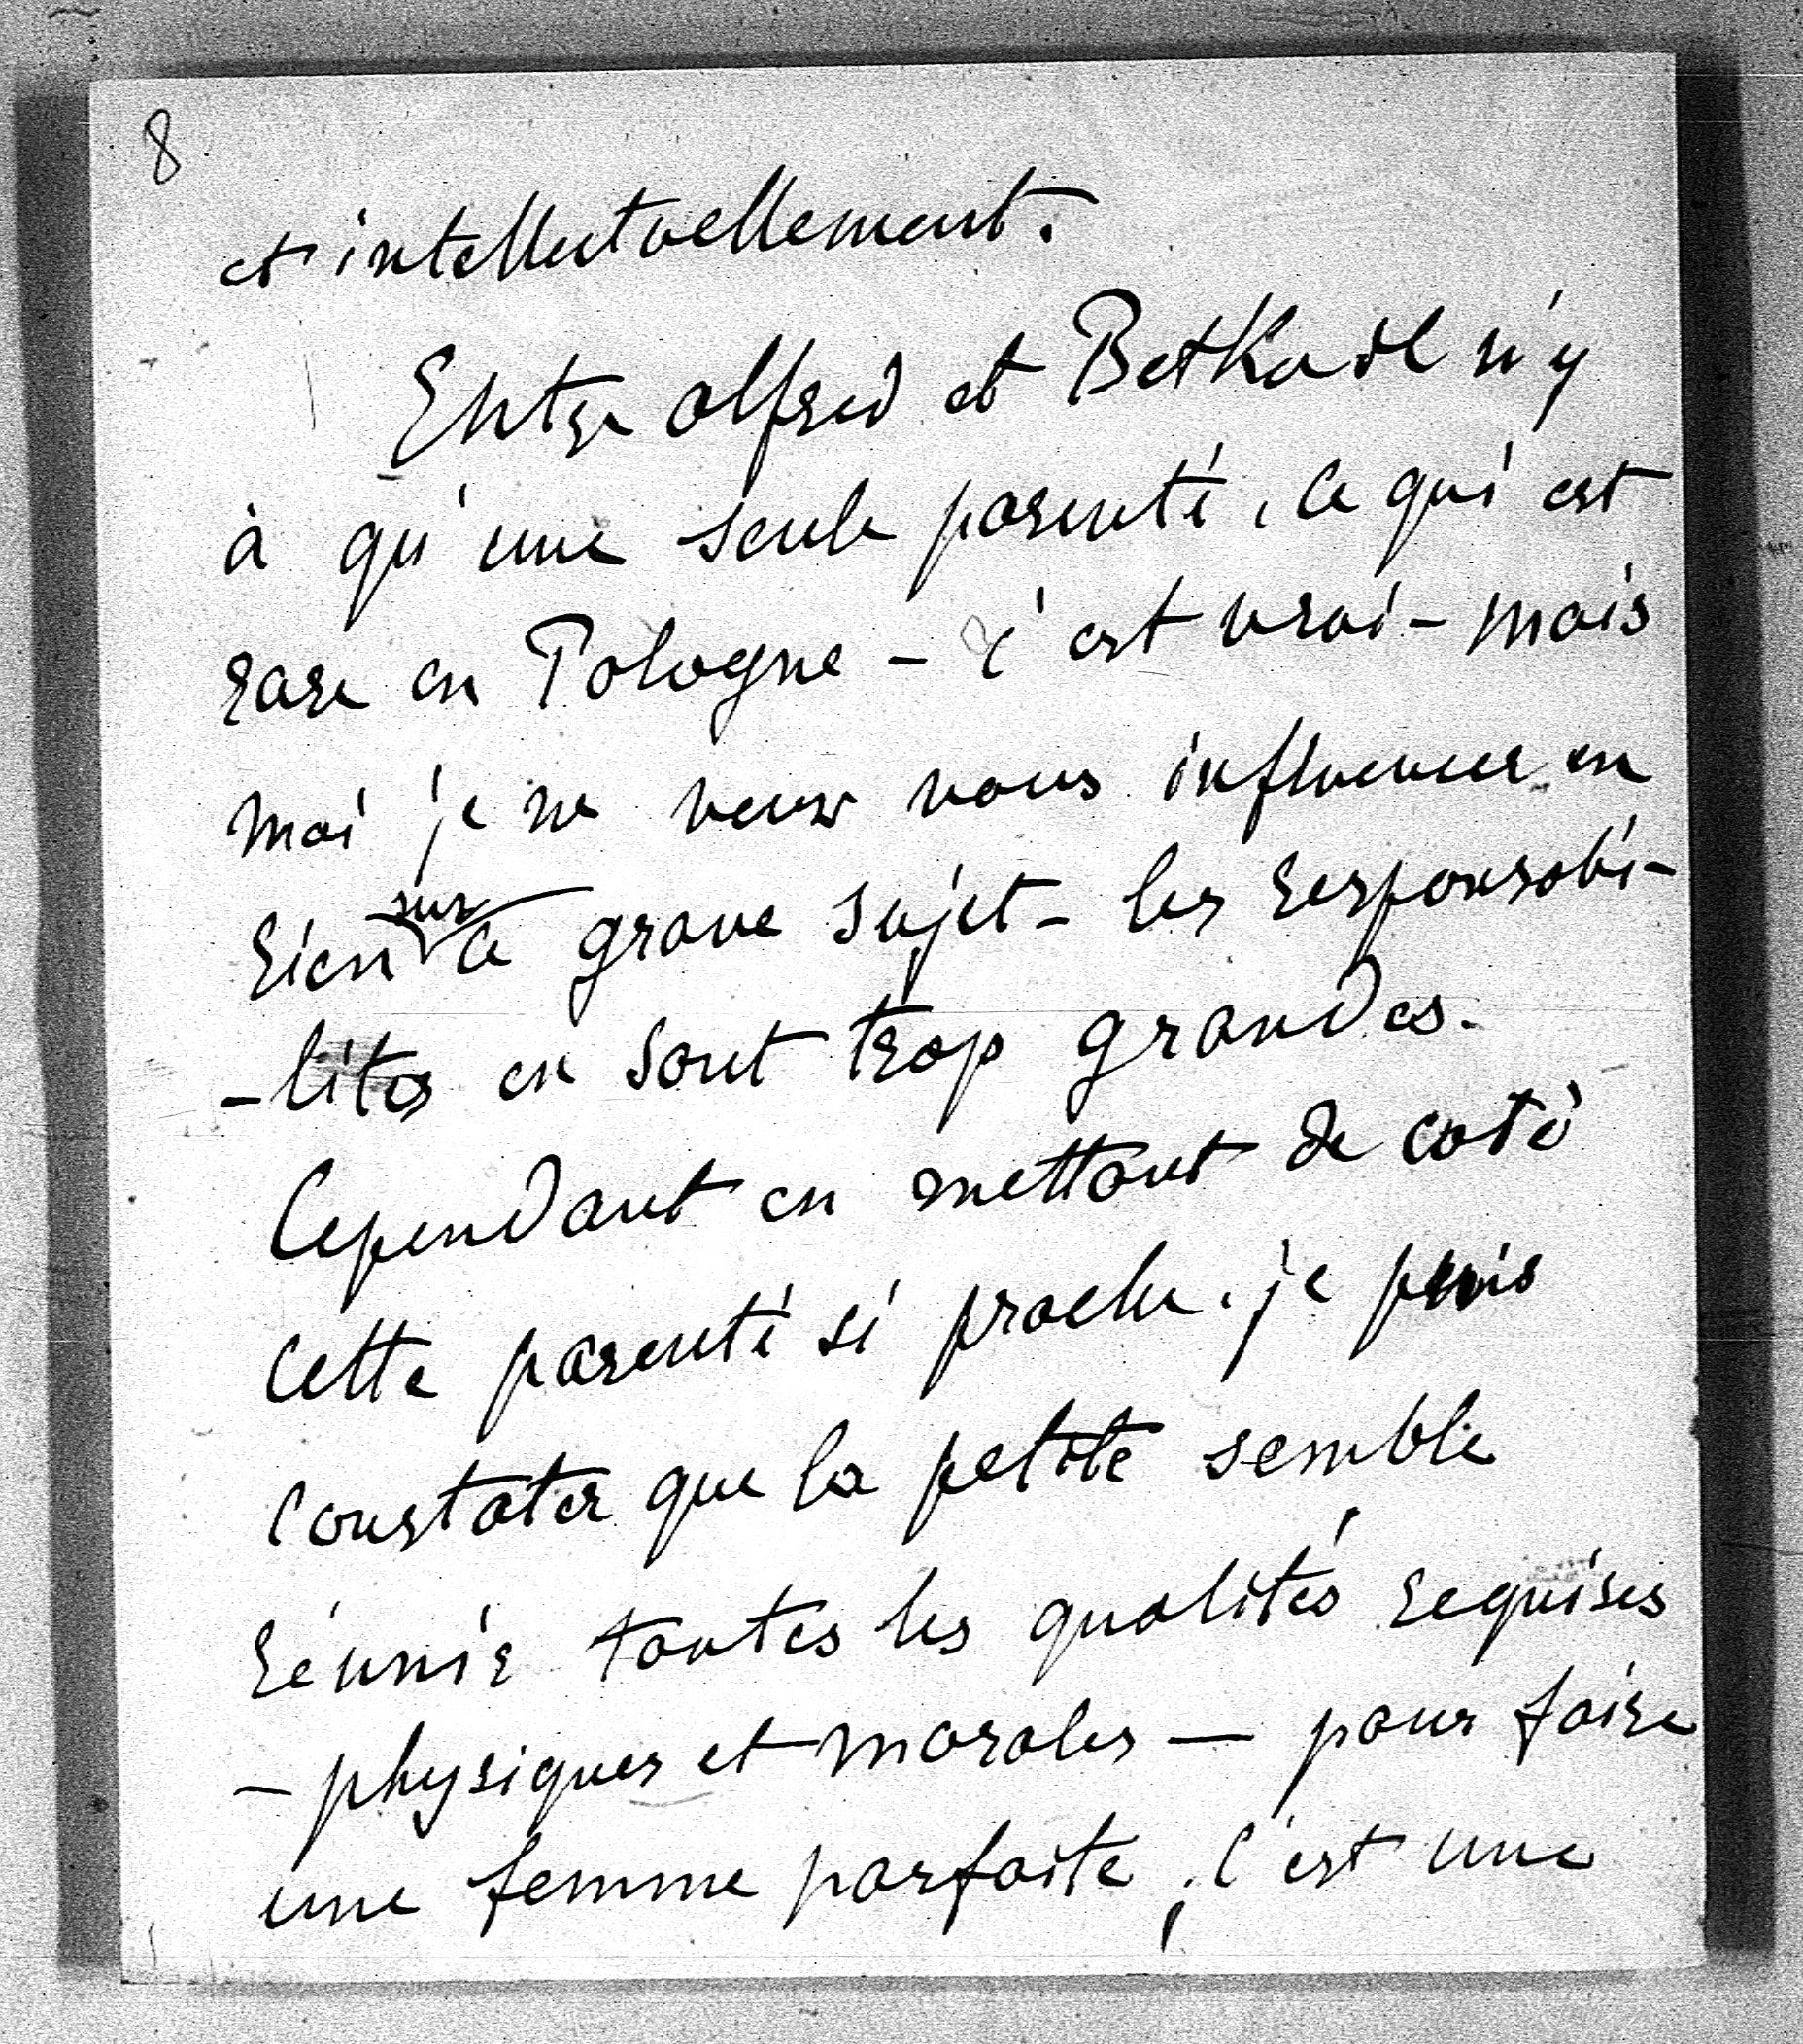 8
et intellectuellement.
Entre Alfred et Betka il n'y
à qu'une seule parenté, ce qui est
rare en Pologne - c'est vrai - mais
moi je ne veux vous influencer en
rien sur ce grave sujet - les responsabi-
-lités en sont trop grandes.
Cependant en mettant de coté
cette parenté si proche. je puis
constater que la petite semble
réunir toutes les qualités requises
- physiques et morales - pour faire
une femme parfaite, c'est une